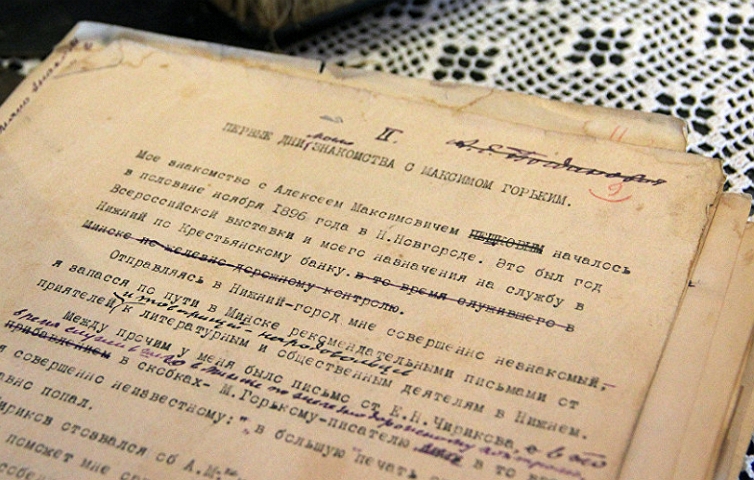 II.
ПЕРВЫЕ ДНИ моего ЗНАКОМСТВА С МАКСИМОМ ГОРЬКИМ.
Мое знакомство с Алексеем Максимовичем Пешковым началось
в половине ноября 1896 года в Н.Новгороде. Это был год
Всероссийской выставки и моего назначения на службу в
Нижний по Крестьянскому банку. в то время служившего в
Минске по железно дорожному контролю.
Отправляясь в Нижний-город мне совершенно незнакомый,-
я запасся по пути в Минске рекомендательными письмами от
приятелей и товарищей-народовцев к литературным и общественным деятелям в Нижнем.
Между прочим у меня было письмо от Е.Н.Чирикова, в то
время служившего в Минске по железно дорожному контролю,
прибавлением в скобках- М.Горькому-писателю в то
я совершенно неизвестному; в большую печать
авно попал.
ириков отозвался об А.М.
поможет мне